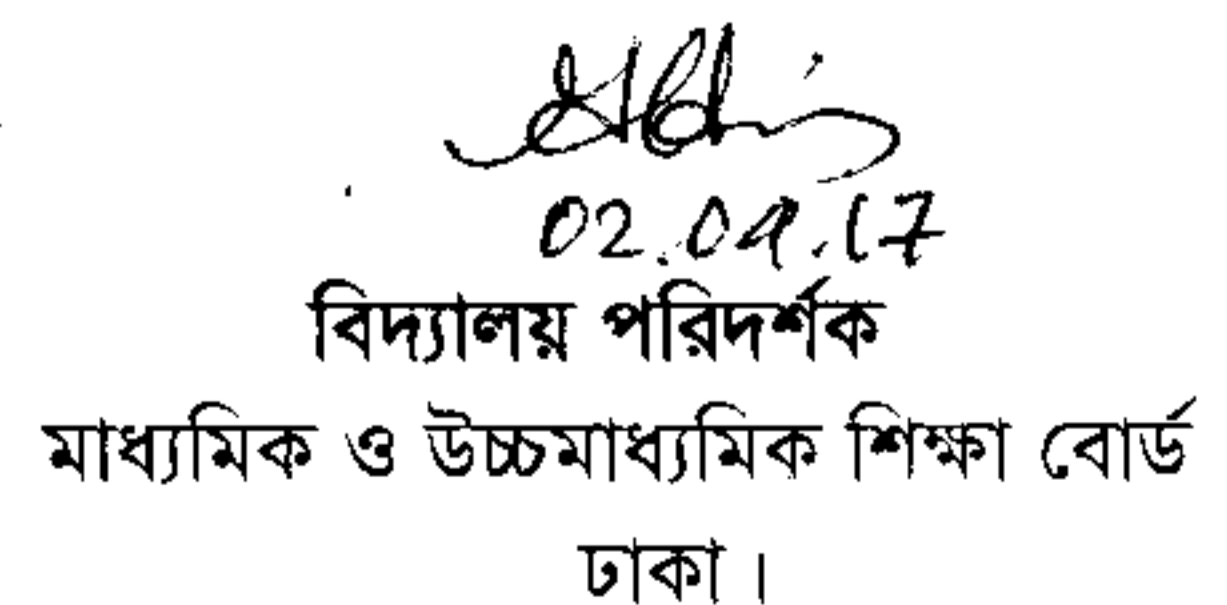 02.04.17
বিদ্যালয় পরিদর্শক
মাধ্যমিক ও উচ্চমাধ্যমিক শিক্ষা বোর্ড
ঢাকা।